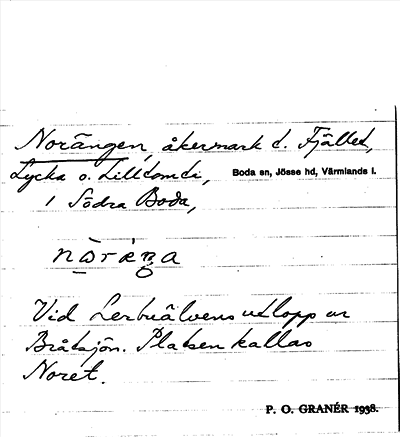 Norängen, åkermark t. Fjället,
Lycka o. Lilltomta,
Boda sn, Jösse hd, Värmlands l.
i Södra Boda,
Vid Lerbuälvens utlopp ur
Bråtsjön. Platsen kallas
Noret.
P. O. GRANÉR 1938.